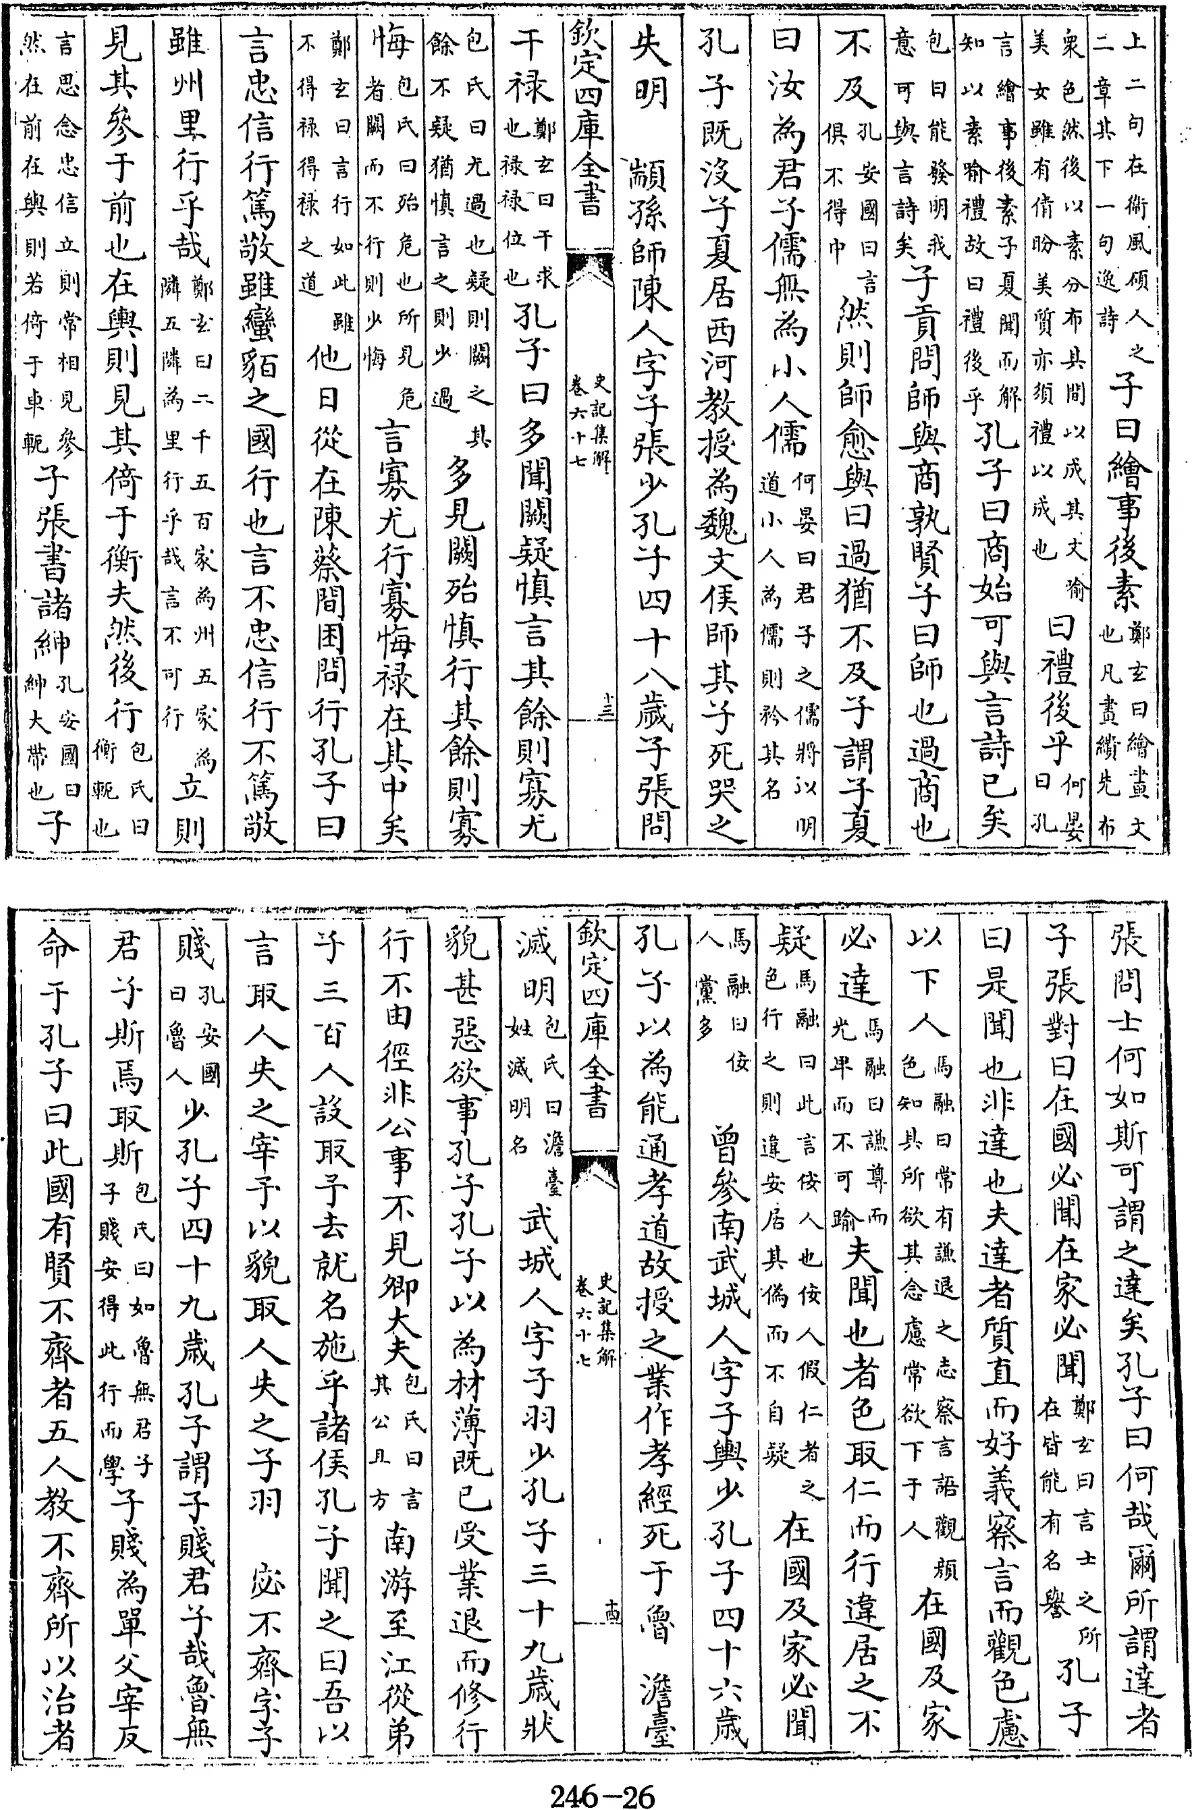 上二句在衞風碩人之二章其下一句逸詩子曰繪事後素鄭玄曰繪畫文也凡畫繢先布
衆色然後以素分布其間以成其文喻美女雖有倩盼美質亦須禮以成也曰禮後乎何晏曰孔
言繪事後素子夏聞而解知以素喻禮故曰禮後乎孔子曰商始可與言詩已矣
包曰能發明我意可與言詩矣子貢問師與商孰賢子曰師也過商也
不及孔安國曰言俱不得中然則師愈與曰過猶不及子謂子夏
曰汝為君子儒無為小人儒何晏曰君子之儒將以明道小人為儒則矜其名
孔子既没子夏居西河教授為魏文侯師其子死哭之
失明 顓孫師陳人字子張少孔子四十八歲子張問
欽定四庫全書 史記集解 卷六十七 十三
干禄鄭玄曰干求也禄禄位也孔子曰多聞闕疑慎言其餘則寡尤
包氏曰尤過也疑則闕之其餘不疑猶慎言之則少過多見闕殆慎行其餘則寡
悔包氏曰殆危也所見危者闕而不行則少悔言寡尤行寡悔禄在其中矣
鄭玄曰言行如此雖不得禄得禄之道他日從在陳蔡間困問行孔子曰
言忠信行篤敬雖蠻貊之國行也言不忠信行不篤敬
雖州里行乎哉鄭玄曰二千五百家為州五家為隣五隣為里行乎哉言不可行立則
見其參于前也在輿則見其倚于衡夫然後行包氏曰衡軛也
言思念忠信立則常相見參然在前在輿則若倚于車軛子張書諸紳孔安國曰紳大帶也子
張問士何如斯可謂之達矣孔子曰何哉爾所謂達者
子張對曰在國必聞在家必聞鄭玄曰言士之所在皆能有名譽孔子
曰是聞也非達也夫達者質直而好義察言而觀色慮
以下人馬融曰常有謙退之志察言語觀顏色知其所欲其念慮常欲下于人在國及家
必達馬融曰謙尊而光卑而不可踰夫聞也者色取仁而行違居之不
疑馬融曰此言佞人也佞人假仁者之色行之則違安居其偽而不自疑在國及家必聞
馬融曰佞人黨多 曾參南武城人字子輿少孔子四十六歲
孔子以為能通孝道故授之業作孝經死于魯 澹臺
欽定四庫全書 史記集解 卷六十七 十四
滅明包氏曰澹臺姓滅明名武城人字子羽少孔子三十九歲狀
貌甚惡欲事孔子孔子以為材薄既已受業退而修行
行不由徑非公事不見卿大夫包氏曰言其公且方南游至江從弟
子三百人設取予去就名施乎諸侯孔子聞之曰吾以
言取人失之宰予以貌取人失之子羽 宓不齊字子
賤孔安國曰魯人少孔子四十九歲孔子謂子賤君子哉魯無
君子斯焉取斯包氏曰如魯無君子子賤安得此行而學子賤為單父宰反
命于孔子曰此國有賢不齊者五人教不齊所以治者
246-26